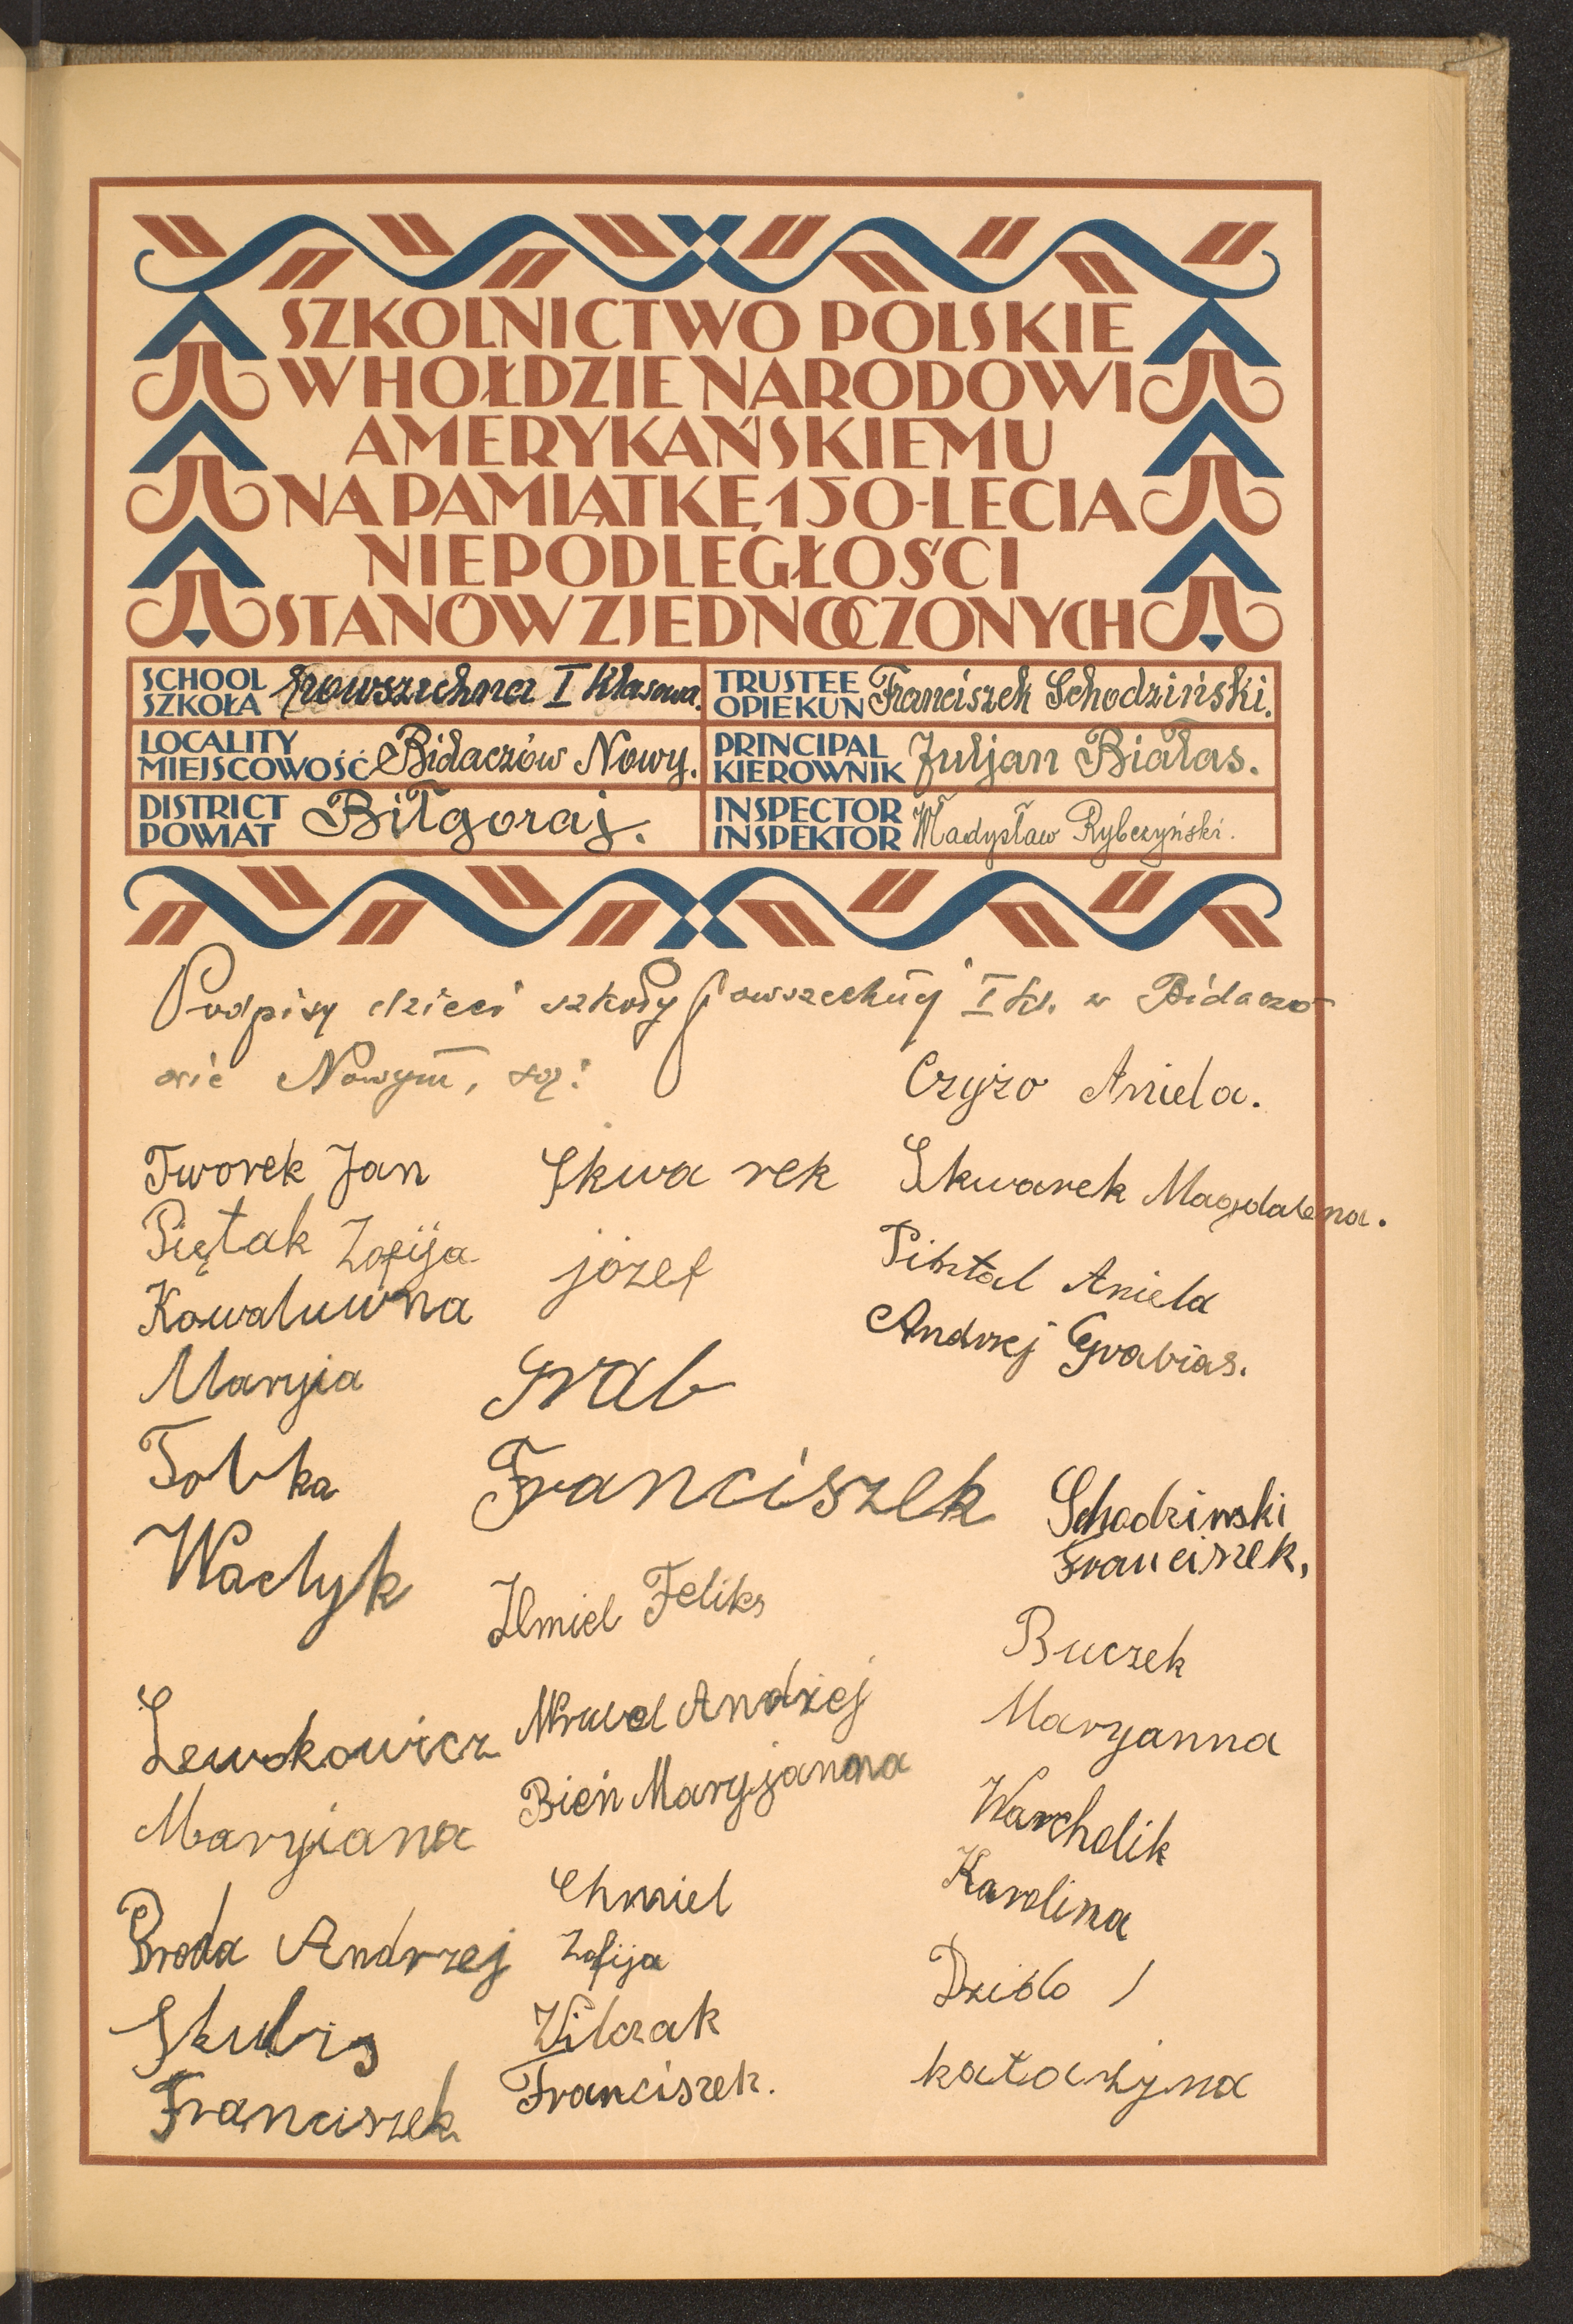 SZKOLNICTWO POLSKIE
W HOŁDZIE NARODOWI
AMERYKAŃSKIEMU
NA PAMIĄTKĘ 150-LECIA
NIEPODLEGŁOŚCI
STANÓW ZJEDNOCZONYCH
SCHOOL
SZKOŁA powszechna I klasowa.
TRUSTEE
OPIEKUN Franciszek Schodziński.
LOCALITY
MIEJSCOWOŚĆ Bidaczów Nowy.
PRINCIPAL
KIEROWNIK Juljan Białas.
DISTRICT
POWIAT Biłgoraj.
INSPECTOR
INSPEKTOR Władysław Rybczyński.
Podpisy dzieci szkoły powszechnej I kl. w Bidaczo-
wie Nowym, są:
Tworek Jan
Piętak Zofija
Kowaluwna
Maryia
Tobka
Wactyk
Lewkowicz
Maryiana
Broda Andrzej
Skubis
Franciszek
Skwa rek
józef
Grab
Franciszek
Feliks
Andrzej
Bień Maryjanna
Chmiel
Zofija
Wilczak
Franciszek.
Czyżo Aniela.
Skwarek Magdalena.
Aniela
Andrzej Grabias.
Schodzinski
Franciszek.
Buczek
Maryanna
Warcholik
Karolina
Dzido
katarzyna